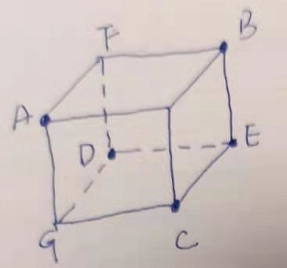 F
B
A
D
E
G
C